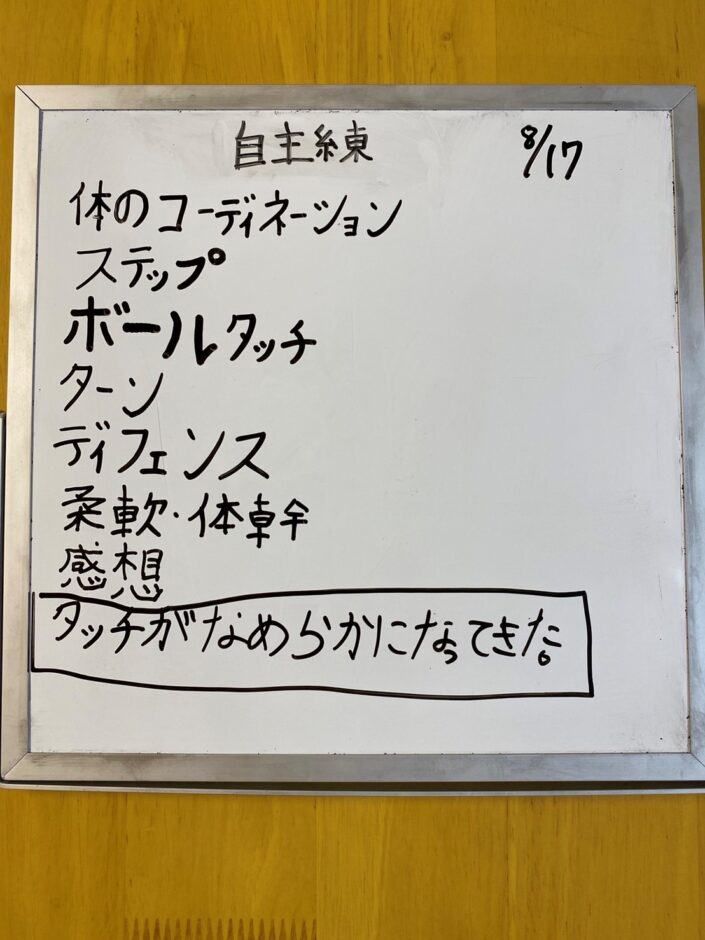 自主練 8/17
体のコーディネーション
ステップ
ボールタッチ
ターン
ディフェンス
柔軟・体幹
感想
タッチがなめらかになってきた。